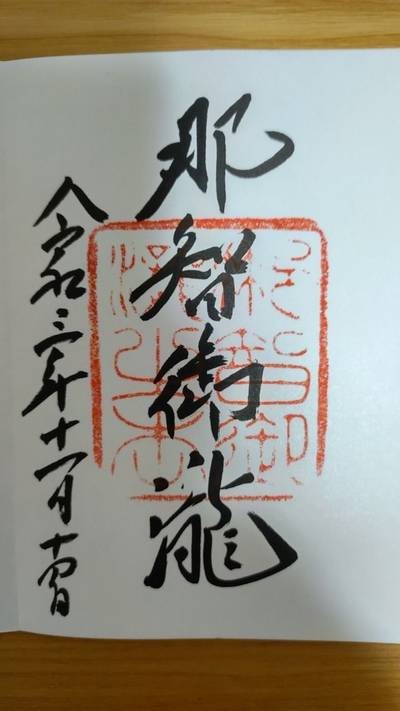 那智御瀧
令和三年十一月十四日